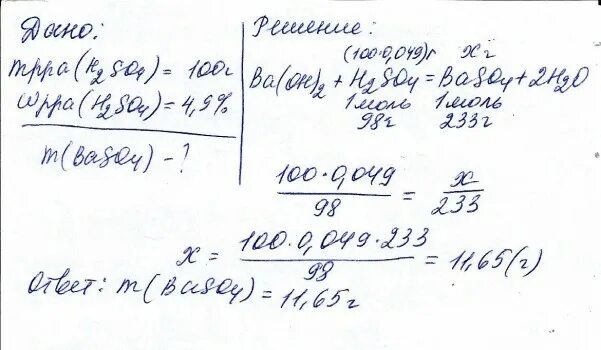 Дано:
mppa(H₂SO₄) = 100г
ωppa(H₂SO₄) = 4,9%
m(BaSO₄) - ?
Решение:
(100·0,049)г xг
Ba(OH)₂ + H₂SO₄ = BaSO₄ + 2H₂O
1моль 1моль
98г 233г
100·0,049/98 = x/233
x = 100·0,049·233/98 = 11,65(г)
Ответ: m(BaSO₄) = 11,65г